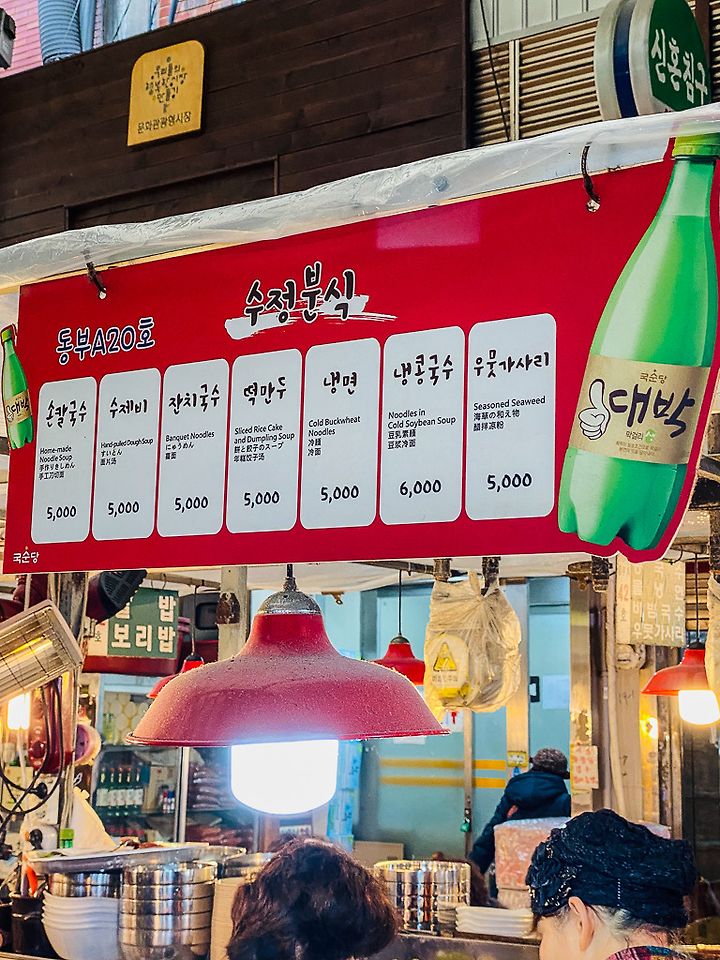 우리들의
행복한시장
만들기
문화관광형시장
신흥침구
동부A20호
수정분식
손칼국수
Home-made
Noodle Soup
手作りきしめん
手工刀切面
5,000
수제비
Hand-pulled Dough Soup
すいとん
面片汤
5,000
잔치국수
Banquet Noodles
にゅうめん
喜面
5,000
떡만두
Sliced Rice Cake
and Dumpling Soup
餅と餃子のスープ
年糕饺子汤
5,000
냉면
Cold Buckwheat
Noodles
冷麺
冷面
5,000
냉콩국수
Noodles in
Cold Soybean Soup
豆乳素麺
豆浆冷面
6,000
우뭇가사리
Seasoned Seaweed
海藻の和え物
醋拌凉粉
5,000
국순당
대박
막걸리
대박
국순당
밥
보리밥
우뭇가사리